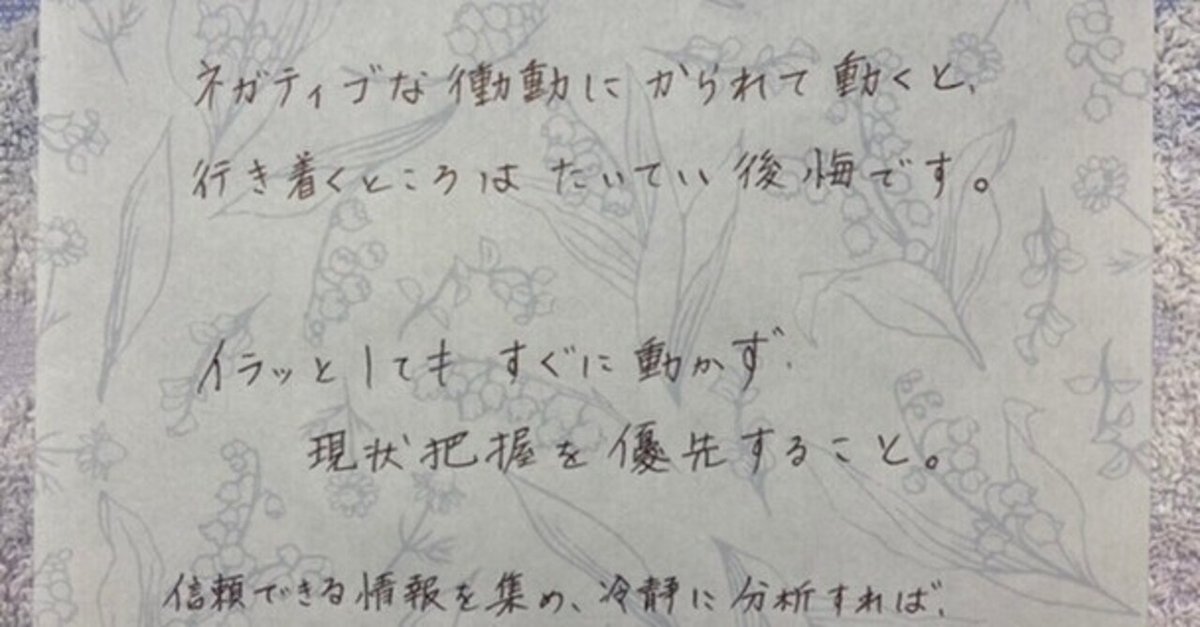 ネガティブな衝動にかられて動くと、
行き着くところはたいてい後悔です。
イラッとしてもすぐに動かず、
現状把握を優先すること。
信頼できる情報を集め、冷静に分析すれば、